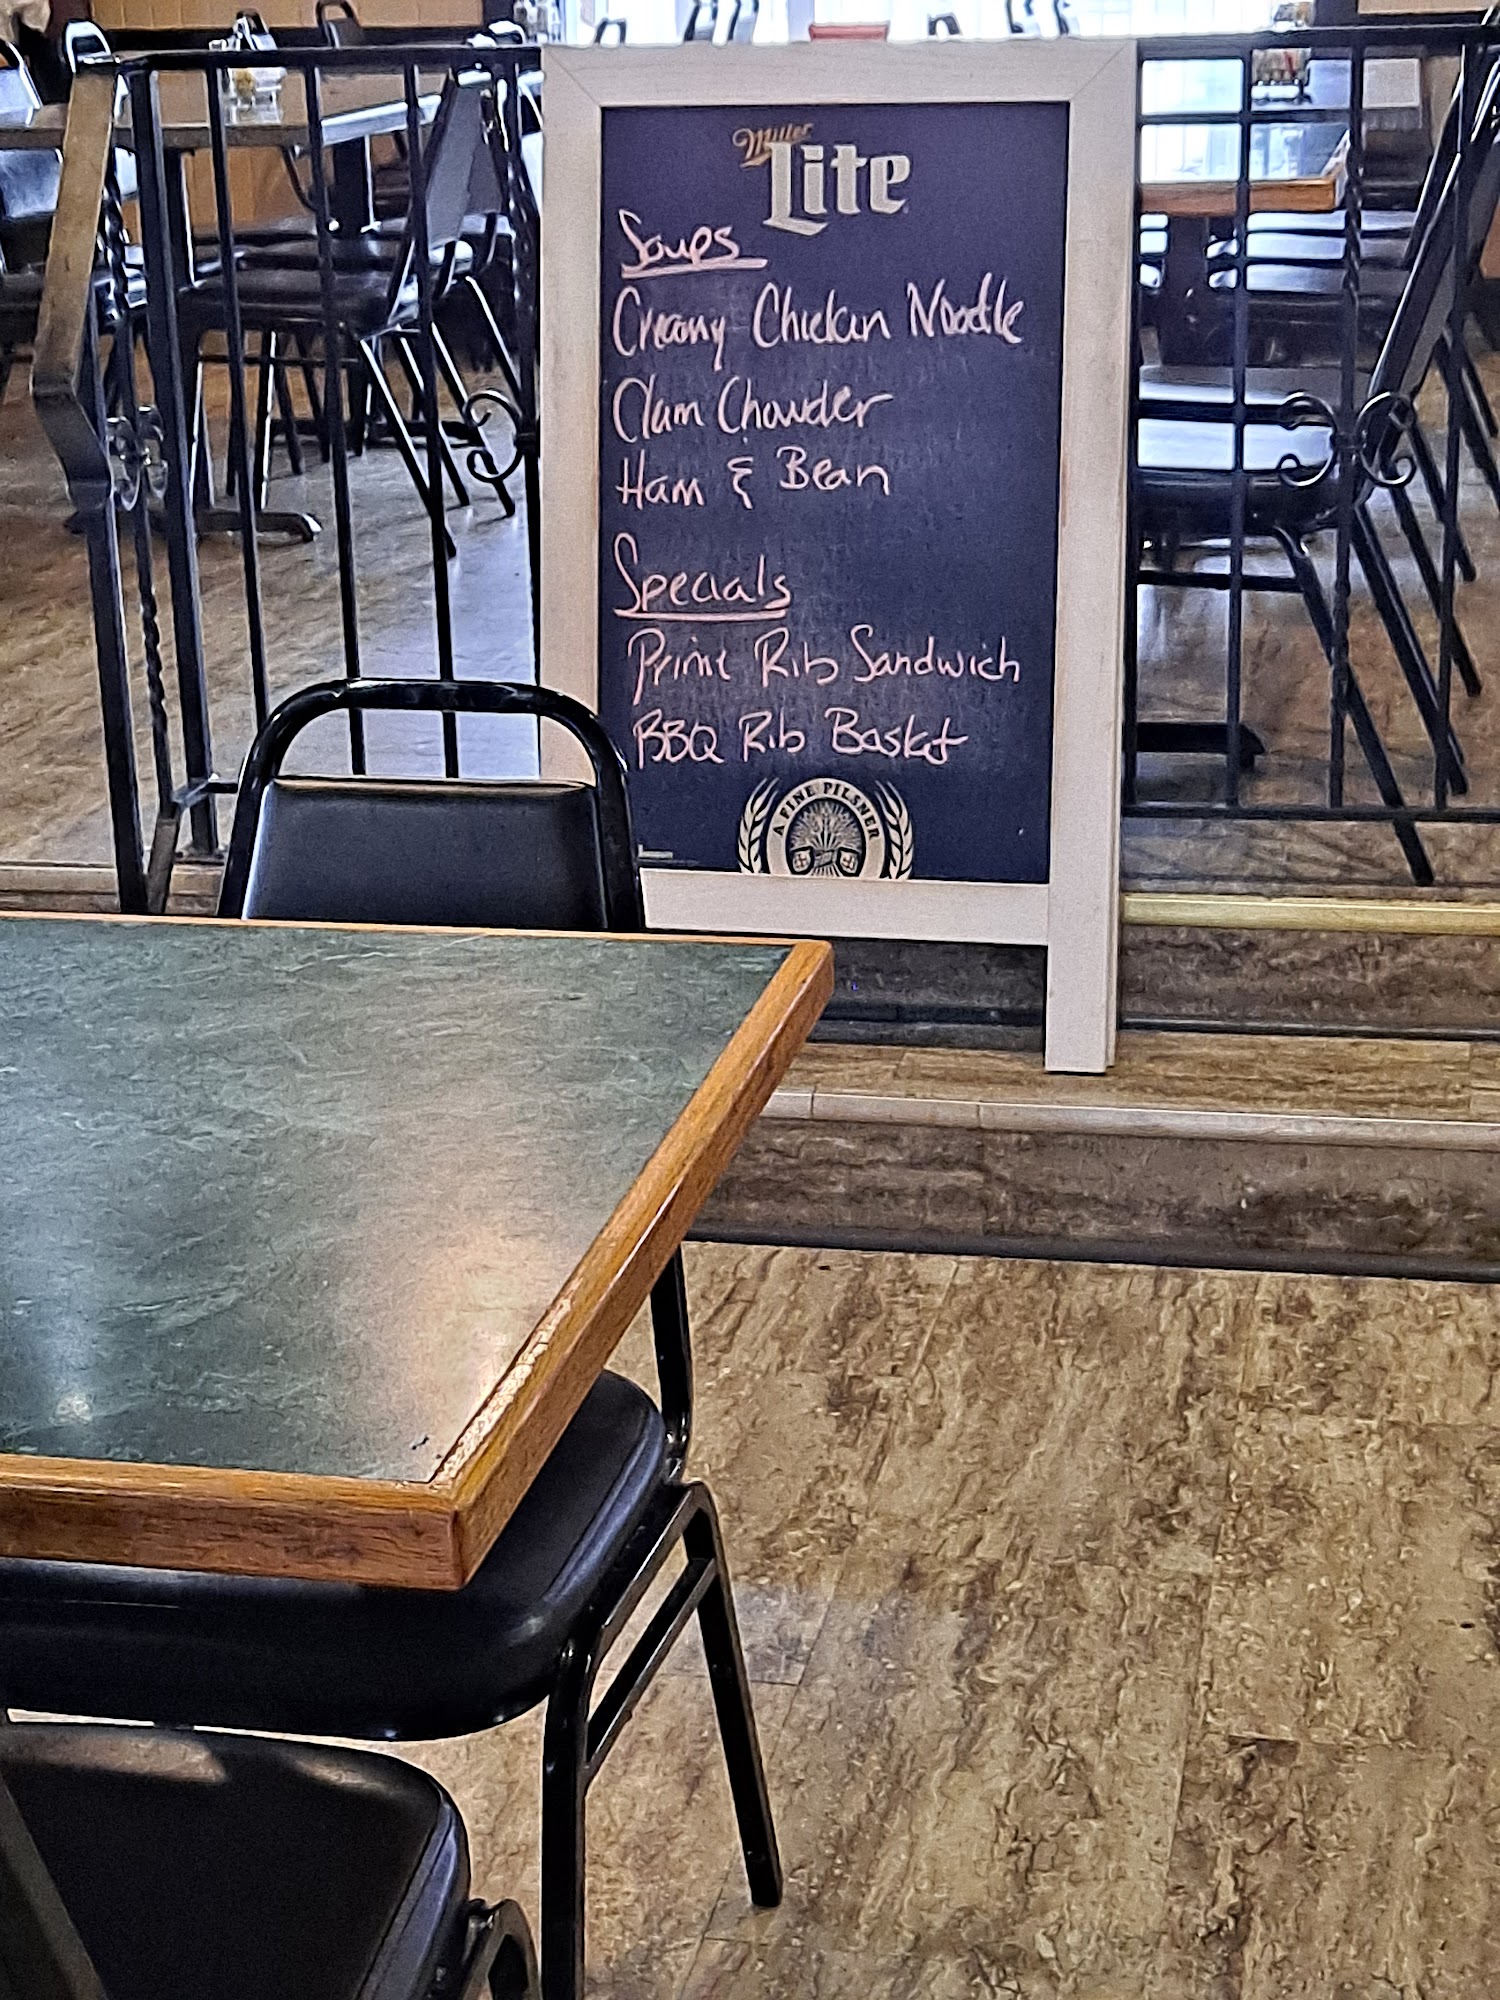 Miller
Lite
Soups
Creamy Chicken Noodle
Clam Chowder
Ham & Bean
Specials
Prime Rib Sandwich
BBQ Rib Basket
A FINE PILSNER